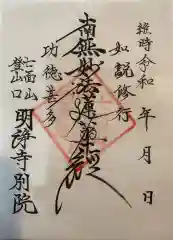 維時令和
年 月 日
如説修行
南無妙法蓮華経
功徳甚多
七面山
登山口
明浄寺別院